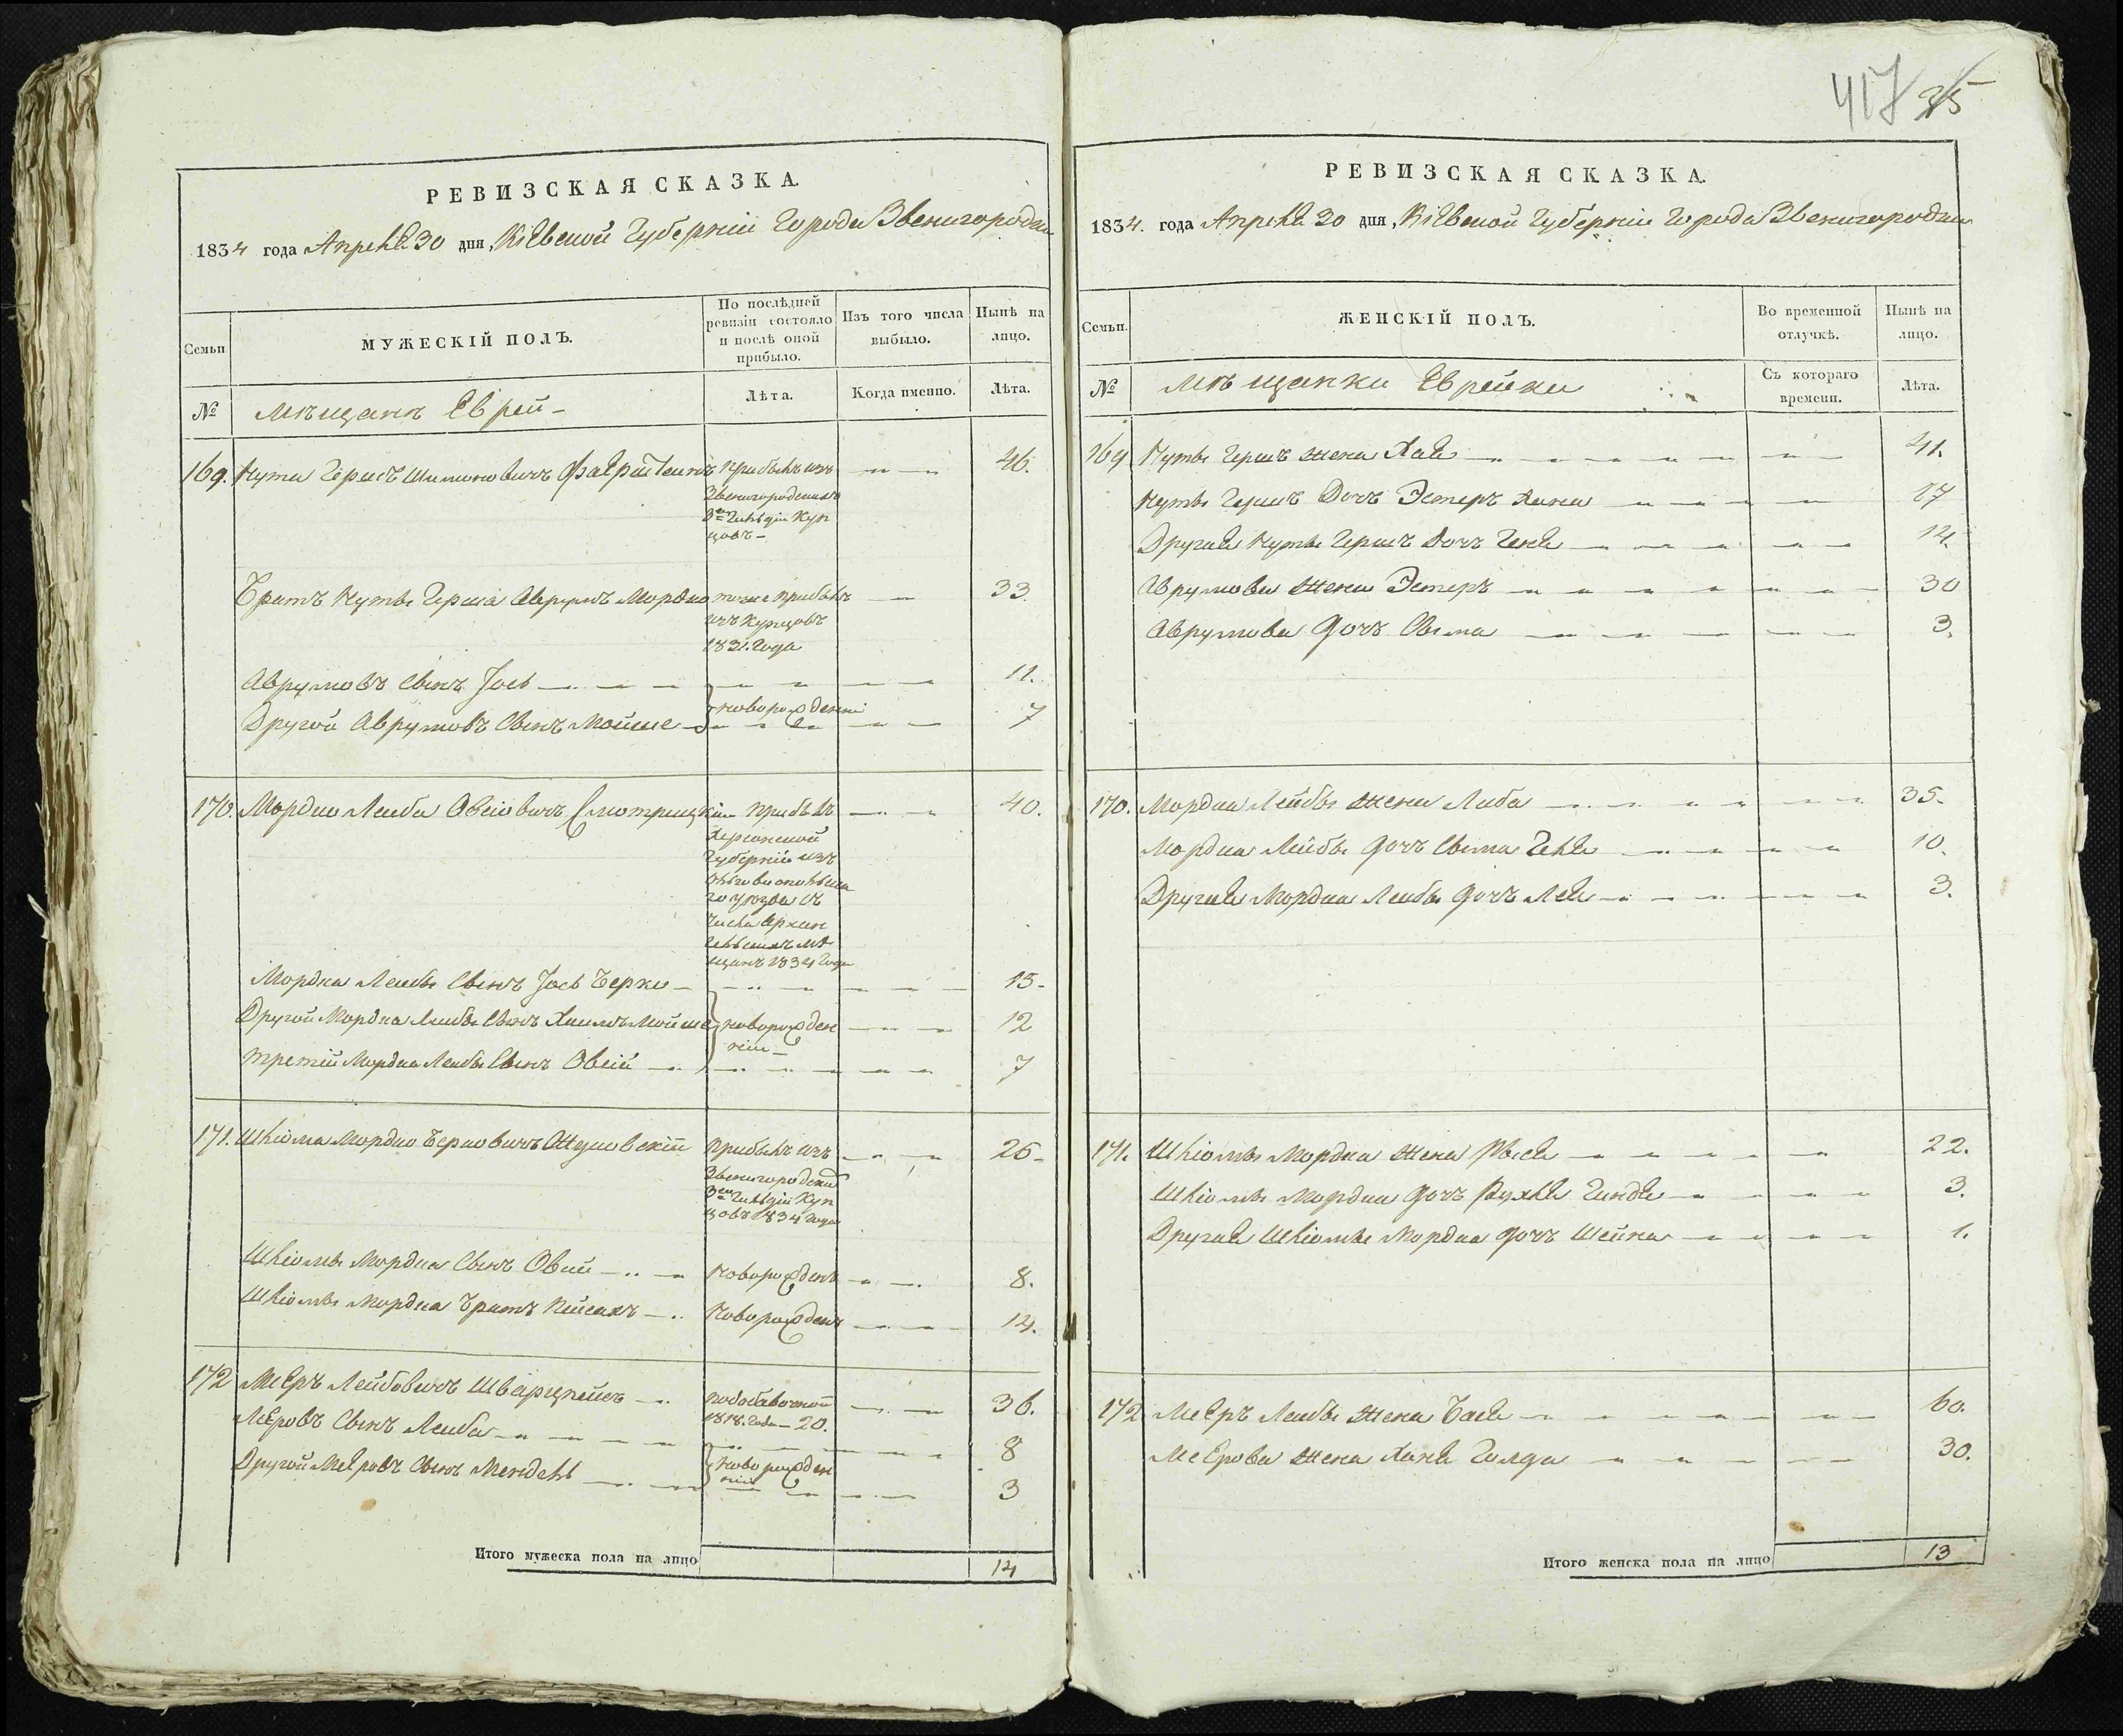 417 35
РЕВИЗСКАЯ СКАЗКА.
1834 года Апреля 30 дня, Кіевской Губерніи Города Звенигородки
Семьи
МУЖЕСКІЙ ПОЛЪ.
По послѣдней
ревизіи состояло
и послѣ оной
прибыло.
Изъ того числа
выбыло.
Нынѣ на
лицо.
№
мѣщанъ Еврей-
Лѣта.
Когда именно.
Лѣта.
169. Нута Гершъ Шимоновичъ прибылъ изъ 46.
Звенигородскихъ
3ей Гильдіи Куп
цовъ-
Братъ Нуты Герша Аврумъ Мордко тоже прибылъ 33
изъ Купцовъ
1831. Года
Аврумовъ Сынъ Іось 11.
новорожденни
Другой Аврумовъ Сынъ Мойше 7
170. Мордко Лейба Овсіовичъ Смотрицкій прибылъ 40.
Херсонской
Губерніи изъ
Ольговіопольска
го уѣзда съ
числа Архан
гельскихъ мѣ
щанъ 1834 Года
Мордка Лейбы Сынъ Іось Берко 15-
Другой Мордка Лейбы Сынъ Хаимъ Мойше новорожден 12
ніи-
третій Мордка Лейбы Сынъ Овсій 7
171. Шліома Мордко Берковичъ прибылъ изъ 26-
Звенигородски
3ей Гильдіи Куп
цовъ 1834 Года
Шліомы Мордка Сынъ Овсій Новорожденъ 8.
Шліомы Мордка Братъ Пейсахъ Новорожденъ 14.
172 Мееръ Лейбовичъ подобавочной 36.
1818. Года - 20.
Меровъ Сынъ Лейба 8
новорожден
ніи
Другой Меяровъ Сынъ Мендель 3
Итого мужеска пола на лицо 14
РЕВИЗСКАЯ СКАЗКА.
1834. года Апреля 30 дня, Кіевской Губерніи Города Звенигородки
Семьи.
ЖЕНСКІЙ ПОЛЪ.
Во временной
отлучкѣ.
Нынѣ на
лицо.
№
мѣщанки Еврейки
Съ котораго
времени.
Лѣта.
169 Нуты Гершъ жена Хая 41.
Нуты Гершъ Дочъ Эстеръ Хана 17
Другая Нуты Гершъ Дочъ Геня 14.
Аврумова жена Эстеръ 30
Аврумова дочъ Сыма 3.
170. Мордка Лейбы жена Либа 35.
Мордка Лейбы дочъ Сыма Геля 10.
Другая Мордка Лейбы дочъ Лея 3.
171. Шліомы Мордка жена Рыся 22.
Шліомы Мордка дочъ Рухля Гиндя 3.
Другая Шліомы Мордка дочъ Шейна 1.
172 Меяръ Лейбы жена Бася 60.
Меярова жена Ханя Голда 30.
Итого женска пола на лицо 13